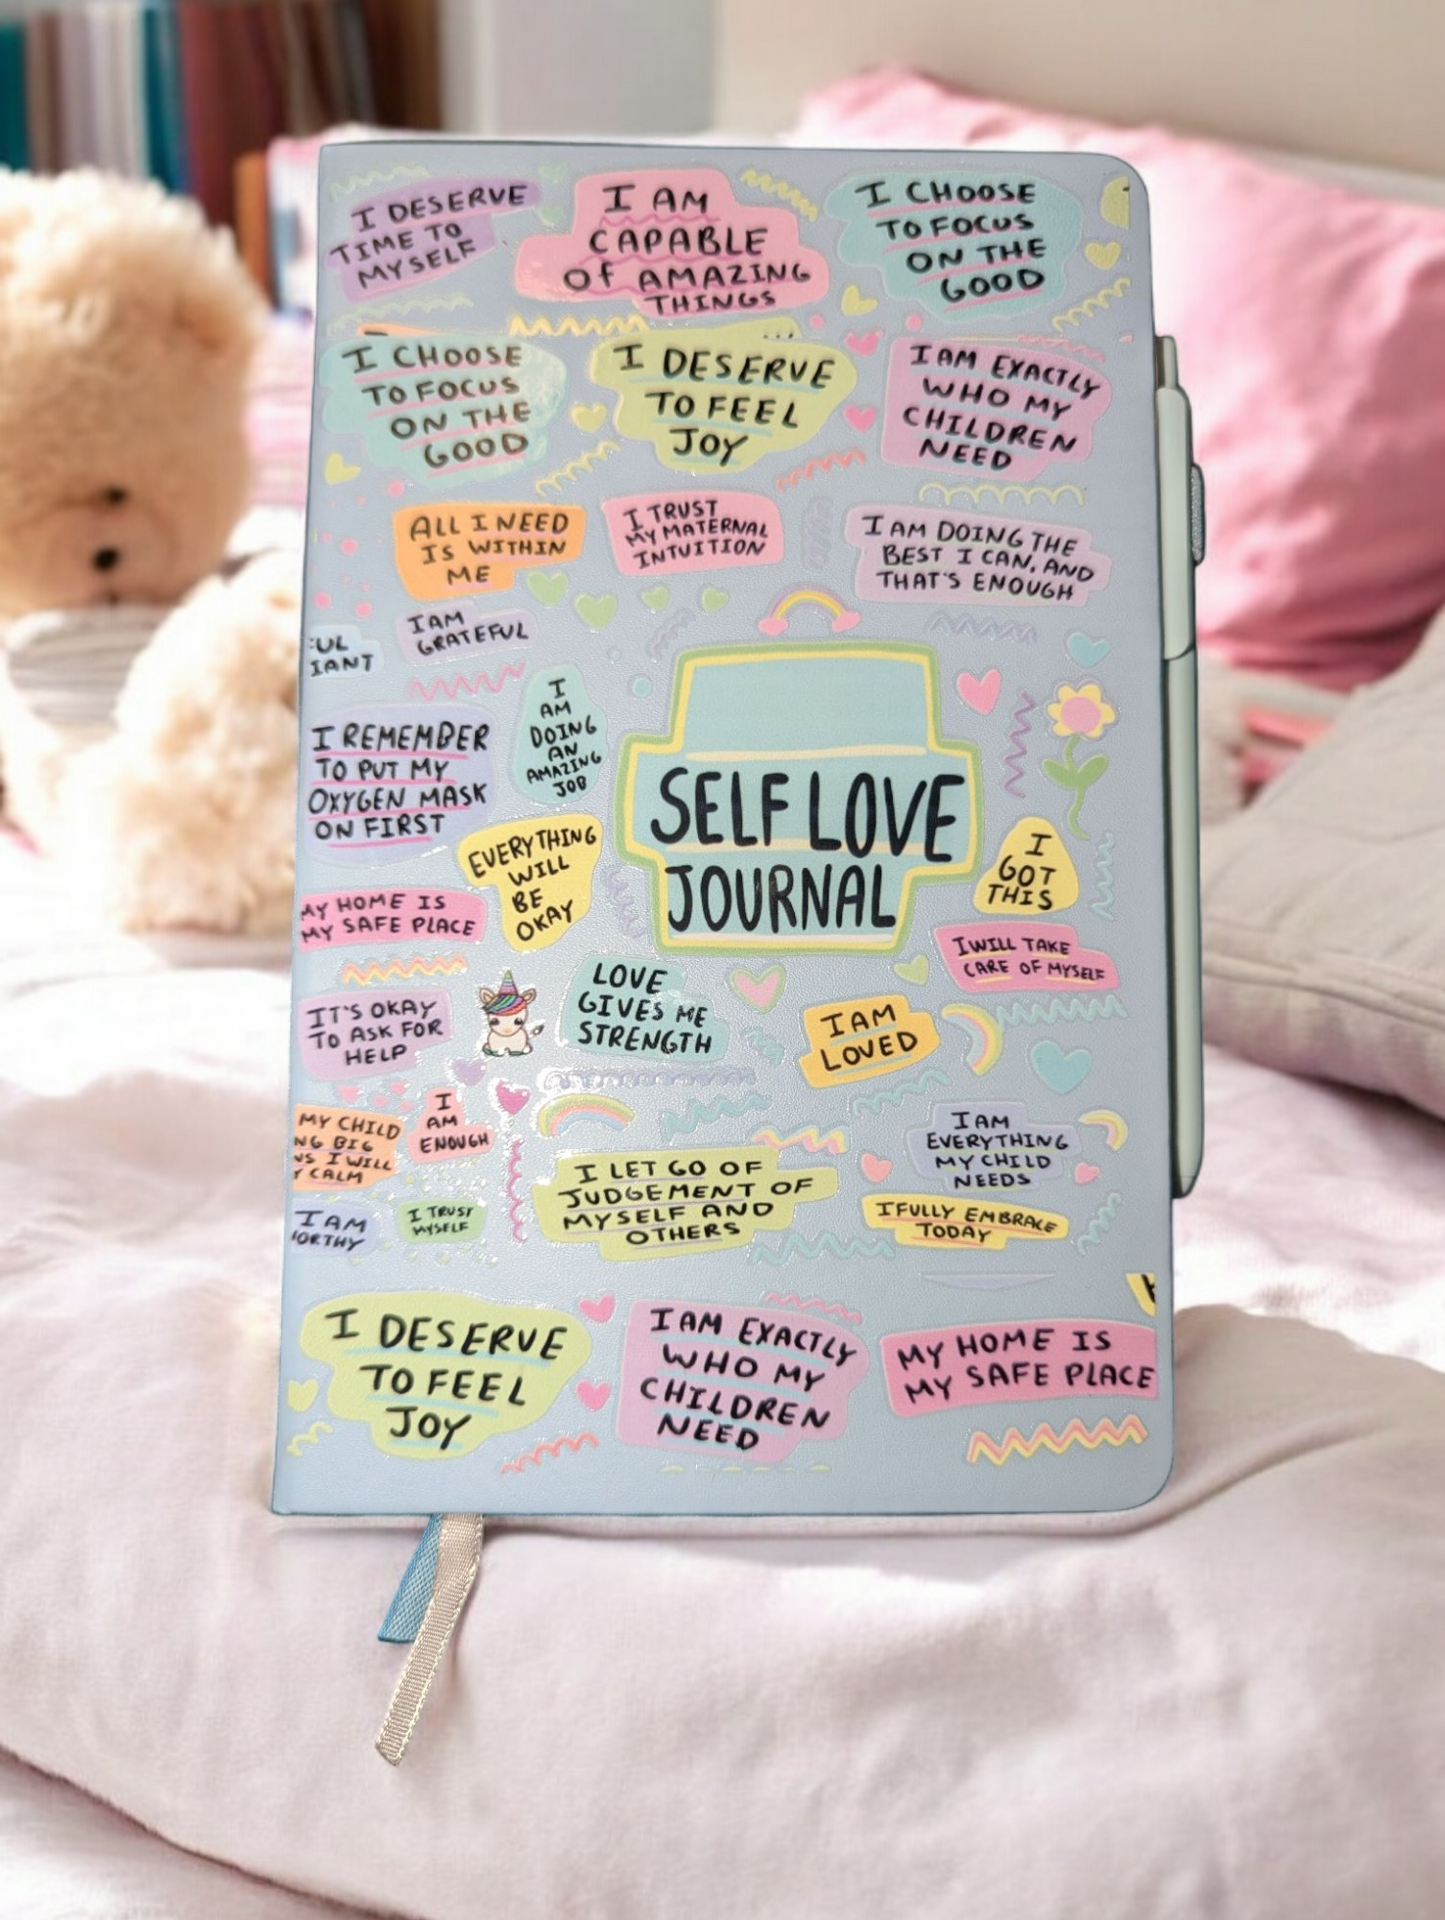 I DESERVE
TIME TO
MYSELF
I AM
CAPABLE
OF AMAZING
THINGS
I CHOOSE
TO FOCUS
ON THE
GOOD
I CHOOSE
TO FOCUS
ON THE
GOOD
I DESERVE
TO FEEL
JOY
I AM EXACTLY
WHO MY
CHILDREN
NEED
ALL I NEED
IS WITHIN
ME
I TRUST
MY MATERNAL
INTUITION
I AM DOING THE
BEST I CAN, AND
THAT'S ENOUGH
UL
IANT
I AM
GRATEFUL
I REMEMBER
TO PUT MY
OXYGEN MASK
ON FIRST
I
AM
DOING
AN
AMAZING
JOB
SELF LOVE
JOURNAL
EVERYTHING
WILL
BE
OKAY
I
GOT
THIS
MY HOME IS
MY SAFE PLACE
I WILL TAKE
CARE OF MYSELF
IT'S OKAY
TO ASK FOR
HELP
LOVE
GIVES ME
STRENGTH
I AM
LOVED
MY CHILD
NG BIG
NS I WILL
Y CALM
I
AM
ENOUGH
I AM
EVERYTHING
MY CHILD
NEEDS
I LET GO OF
JUDGEMENT OF
MYSELF AND
OTHERS
I AM
ORTHY
I TRUST
MYSELF
I FULLY EMBRACE
TODAY
I DESERVE
TO FEEL
JOY
I AM EXACTLY
WHO MY
CHILDREN
NEED
MY HOME IS
MY SAFE PLACE